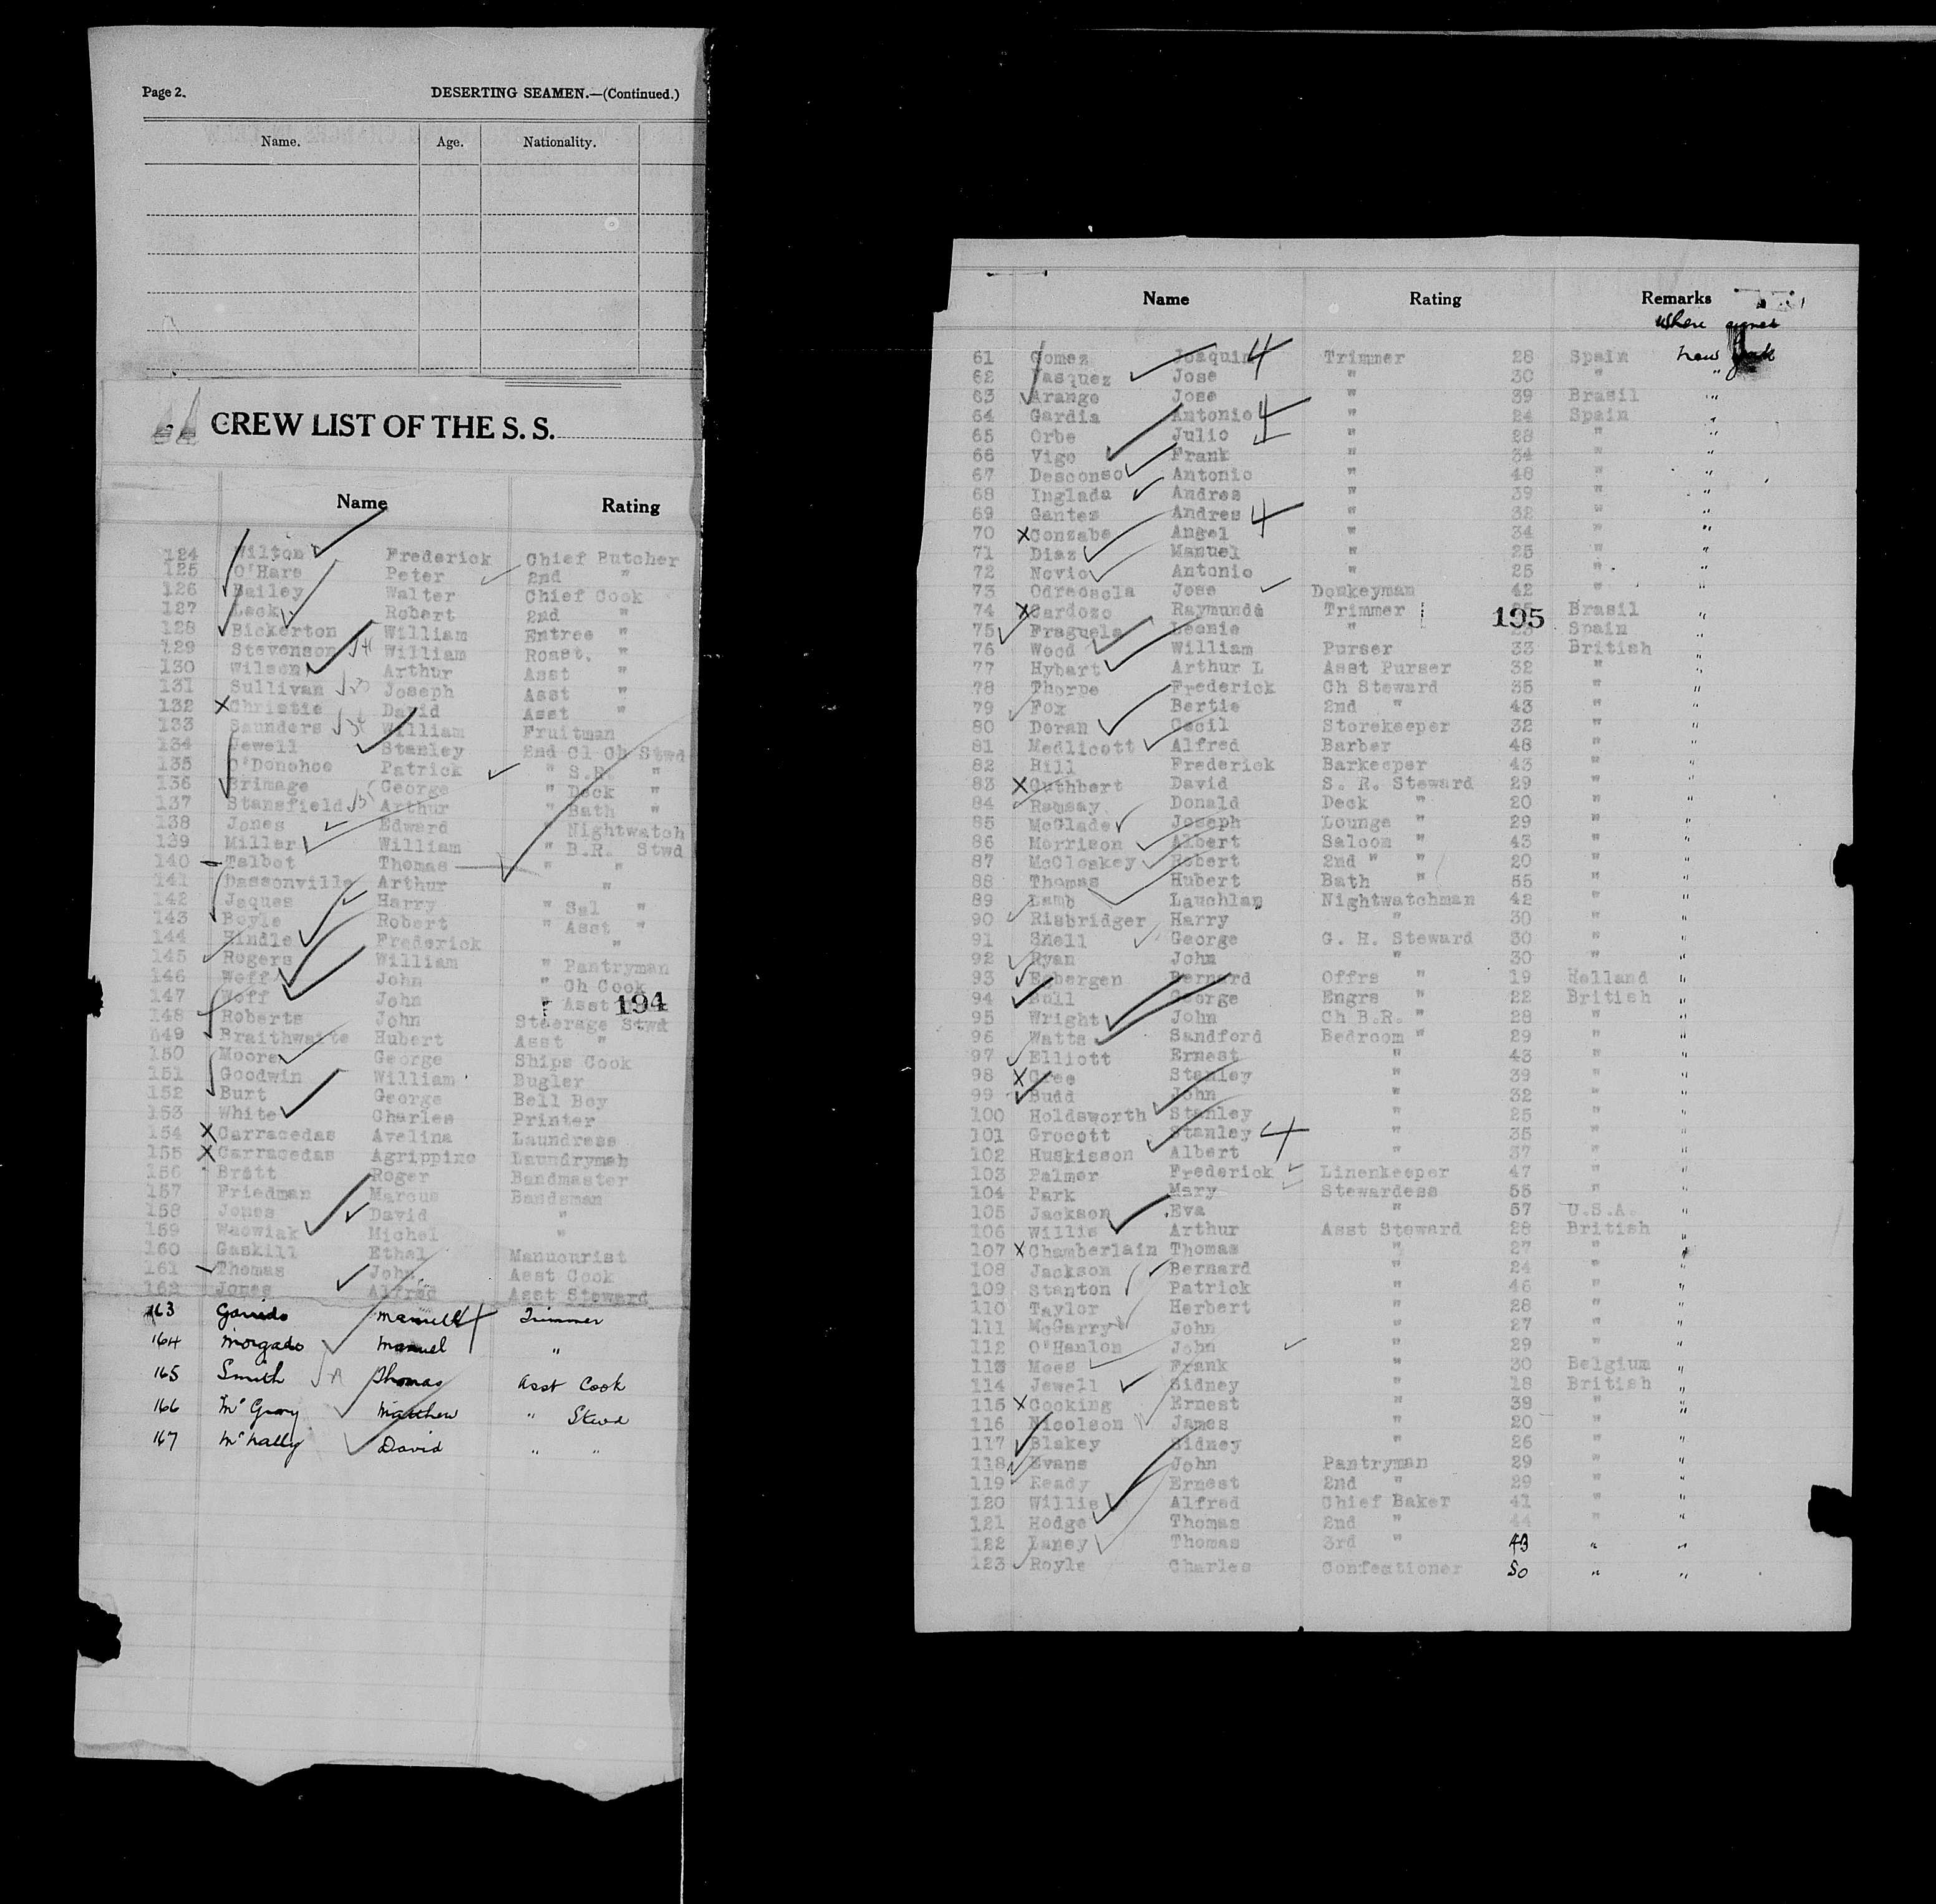 Page 2.
DESERTING SEAMEN.—(Continued.)
Name. Age. Nationality.
CREW LIST OF THE S. S.
Name Rating
124 Wilton Frederick Chief Butcher
125 O'Hare Peter 2nd "
126 Bailey Walter Chief Cook
127 Lack Robert 2nd "
128 Bickerton William Entree "
129 Stevenson William Roast. "
130 Wilson Arthur Asst "
131 Sullivan Joseph Asst "
132 Christie David Asst "
133 Saunders William Fruitman
134 Jewell Stanley 2nd Cl Ch Stwd
135 O'Donohoe Patrick " S.R. "
136 Brimage George " Deck "
137 Stansfield Arthur " Bath "
138 Jones Edward " Nightwatch
139 Miller William " B.R. Stwd
140 Talbot Thomas " "
141 Dassonville Arthur "
142 Jaques Harry " Sal "
143 Boyle Robert " Asst "
144 Hindle Frederick "
145 Rogers William " Pantryman
146 Woff John " Ch Cook
147 Woff John " Asst
194
148 Roberts John Steerage Stwd
149 Braithwaite Hubert Asst "
150 Moore George Ships Cook
151 Goodwin William Bugler
152 Burt George Bell Boy
153 White Charles Printer
154 Carracedas Avelina Laundress
155 Carracedas Agrippino Laundryman
156 Bratt Roger Bandmaster
157 Friedman Marcus Bandsman
158 Jones David "
159 Wacwiak Michel "
160 Gaskill Ethel Manucurist
161 Thomas John Asst Cook
162 Jones Alfred Asst Steward
163 Garrido Manuel Trimmer
164 Morgado Manuel "
165 Smith Thomas Asst Cook
166 McGrory Matthew " Stwd
167 McNally David " "
Name Rating Remarks
Where signed
61 Gomez Joaquin Trimmer 28 Spain New York
62 Vasquez Jose " 30 " "
63 Arango Jose " 39 Brasil "
64 Gardia Antonio " 24 Spain "
65 Orbe Julio " 28 " "
66 Vigo Frank " 34 " "
67 Desconso Antonio " 48 " "
68 Inglada Andres " 39 " "
69 Gantes Andres " 32 " "
70 Conzabe Angel " 34 " "
71 Diaz Manuel " 25 " "
72 Novio Antonio " 25 " "
73 Odreosola Jose Donkeyman 42 " "
74 Cardozo Raymunda Trimmer Brasil "
195
75 Fraguela Leonie " Spain "
76 Wood William Purser 33 British "
77 Hybart Arthur L Asst Purser 32 " "
78 Thorpe Frederick Ch Steward 35 " "
79 Fox Bertie 2nd " 43 " "
80 Doran Cecil Storekeeper 32 " "
81 Medlicott Alfred Barber 48 " "
82 Hill Frederick Barkeeper 43 " "
83 Cuthbert David S. R. Steward 29 " "
84 Ramsay Donald Deck " 20 " "
85 McGlade Joseph Lounge " 29 " "
86 Morrison Albert Saloon " 43 " "
87 McCloskey Robert 2nd " " 20 " "
88 Thomas Hubert Bath " 55 " "
89 Lamb Lauchlan Nightwatchman 42 " "
90 Risbridger Harry " 30 " "
91 Snell George G. H. Steward 30 " "
92 Ryan John " 30 " "
93 Egbergen Bernard Offrs " 19 Holland "
94 Bull George Engrs " 22 British "
95 Wright John Ch B.R. " 28 " "
96 Watts Sandford Bedroom " 29 " "
97 Elliott Ernest " 43 " "
98 Cree Stanley " 39 " "
99 Budd John " 32 " "
100 Holdsworth Stanley " 25 " "
101 Grocott Stanley " 35 " "
102 Huskisson Albert " 37 " "
103 Palmer Frederick Linenkeeper 47 " "
104 Park Mary Stewardess 55 " "
105 Jackson Eva " 57 U.S.A. "
106 Willis Arthur Asst Steward 28 British "
107 Chamberlain Thomas " 27 " "
108 Jackson Bernard " 24 " "
109 Stanton Patrick " 46 " "
110 Taylor Herbert " 28 " "
111 McGarry John " 27 " "
112 O'Hanlon John " 29 " "
113 Mees Frank " 30 Belgium "
114 Jewell Sidney " 18 British "
115 Cocking Ernest " 39 " "
116 Nicolson James " 20 " "
117 Blakey Sidney " 26 " "
118 Evans John Pantryman 29 " "
119 Ready Ernest 2nd " 29 " "
120 Willis Alfred Chief Baker 41 " "
121 Hodge Thomas 2nd " 44 " "
122 Laney Thomas 3rd " 43 " "
123 Royle Charles Confectioner 50 " "